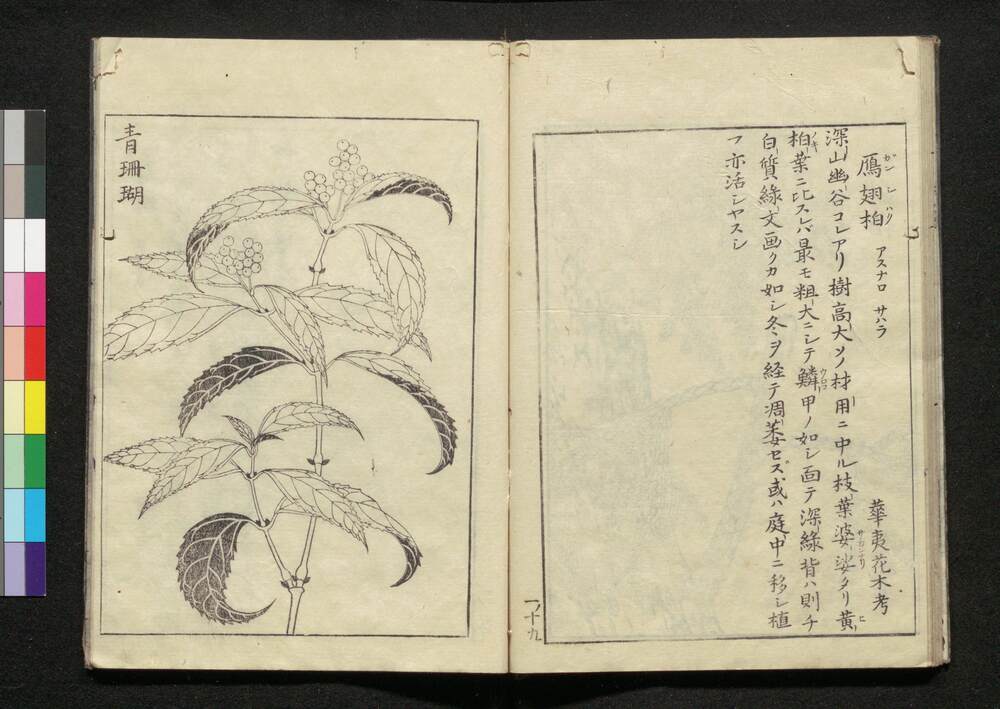 鴈翅柏 アスナロ サハラ 華夷花木考
ガンシハク
深山幽谷コレアリ樹高大メ材用ニ中ル枝葉婆娑タリ黄
サカンナリ ヒ
柏葉ニ比スレバ最モ粗大ニシテ鱗甲ノ如シ面テ深緑背ハ則チ
ノキ ウロコ
白質緑文画クカ如シ冬ヲ経テ凋萎セズ或ハ庭中ニ移シ植
フ亦活シヤスシ
一ノ十九
青珊瑚